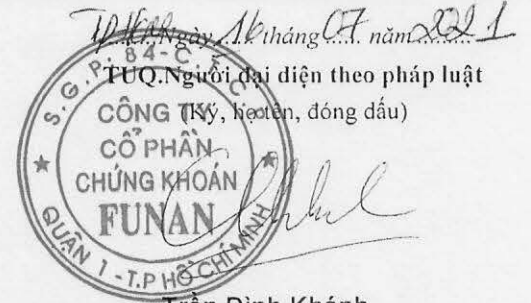 Tp HCM Ngày 16 tháng 07 năm 2021
TUQ.Người đại diện theo pháp luật
(Ký, họ tên, đóng dấu)
S.G.P: 84-C.
CÔNG TY
CỔ PHẦN
CHỨNG KHOÁN
FUNAN
QUẬN 1 - T.P HỒ CHÍ MINH
Trần Đình Khánh